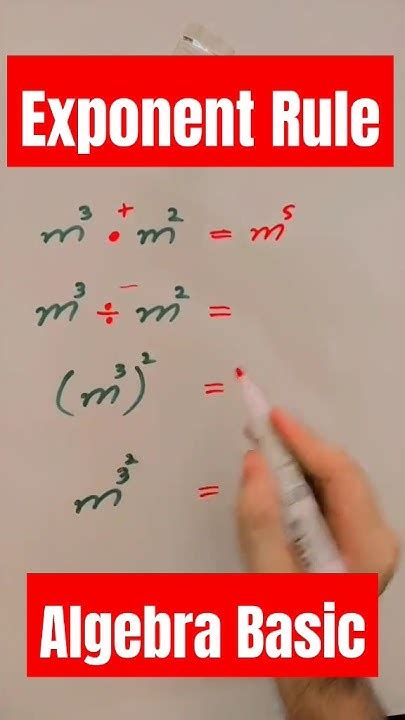 Exponent Rule
m³ ·⁺ m² = m⁵
m³ ÷⁻ m² =
(m³)² =
m^3^2 =
Algebra Basic